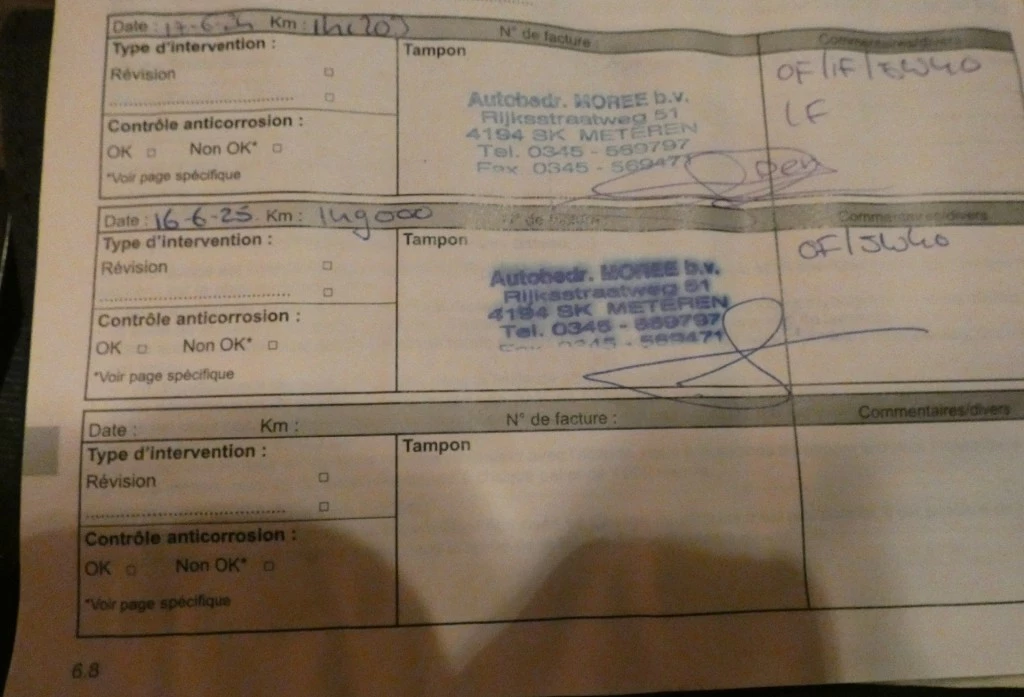 Date : 17-6-24 Km : N° de facture : Commentaires/divers
Type d'intervention : Tampon
Révision
OF/IF/5W40
LF
Autobedr. MOREE b.v.
Rijksstraatweg 51
4194 SK METEREN
Tel. 0345 - 569797
Fax 0345 - 569471
Contrôle anticorrosion :
OK Non OK*
*Voir page spécifique
Date : 16-6-25 Km : 149000 N° de facture : Commentaires/divers
Type d'intervention : Tampon
Révision
OF/5W40
Autobedr. MOREE b.v.
Rijksstraatweg 51
4194 SK METEREN
Tel. 0345 - 569797
Fax 0345 - 569471
Contrôle anticorrosion :
OK Non OK*
*Voir page spécifique
Date : Km : N° de facture : Commentaires/divers
Type d'intervention : Tampon
Révision
Contrôle anticorrosion :
OK Non OK*
*Voir page spécifique
6.8